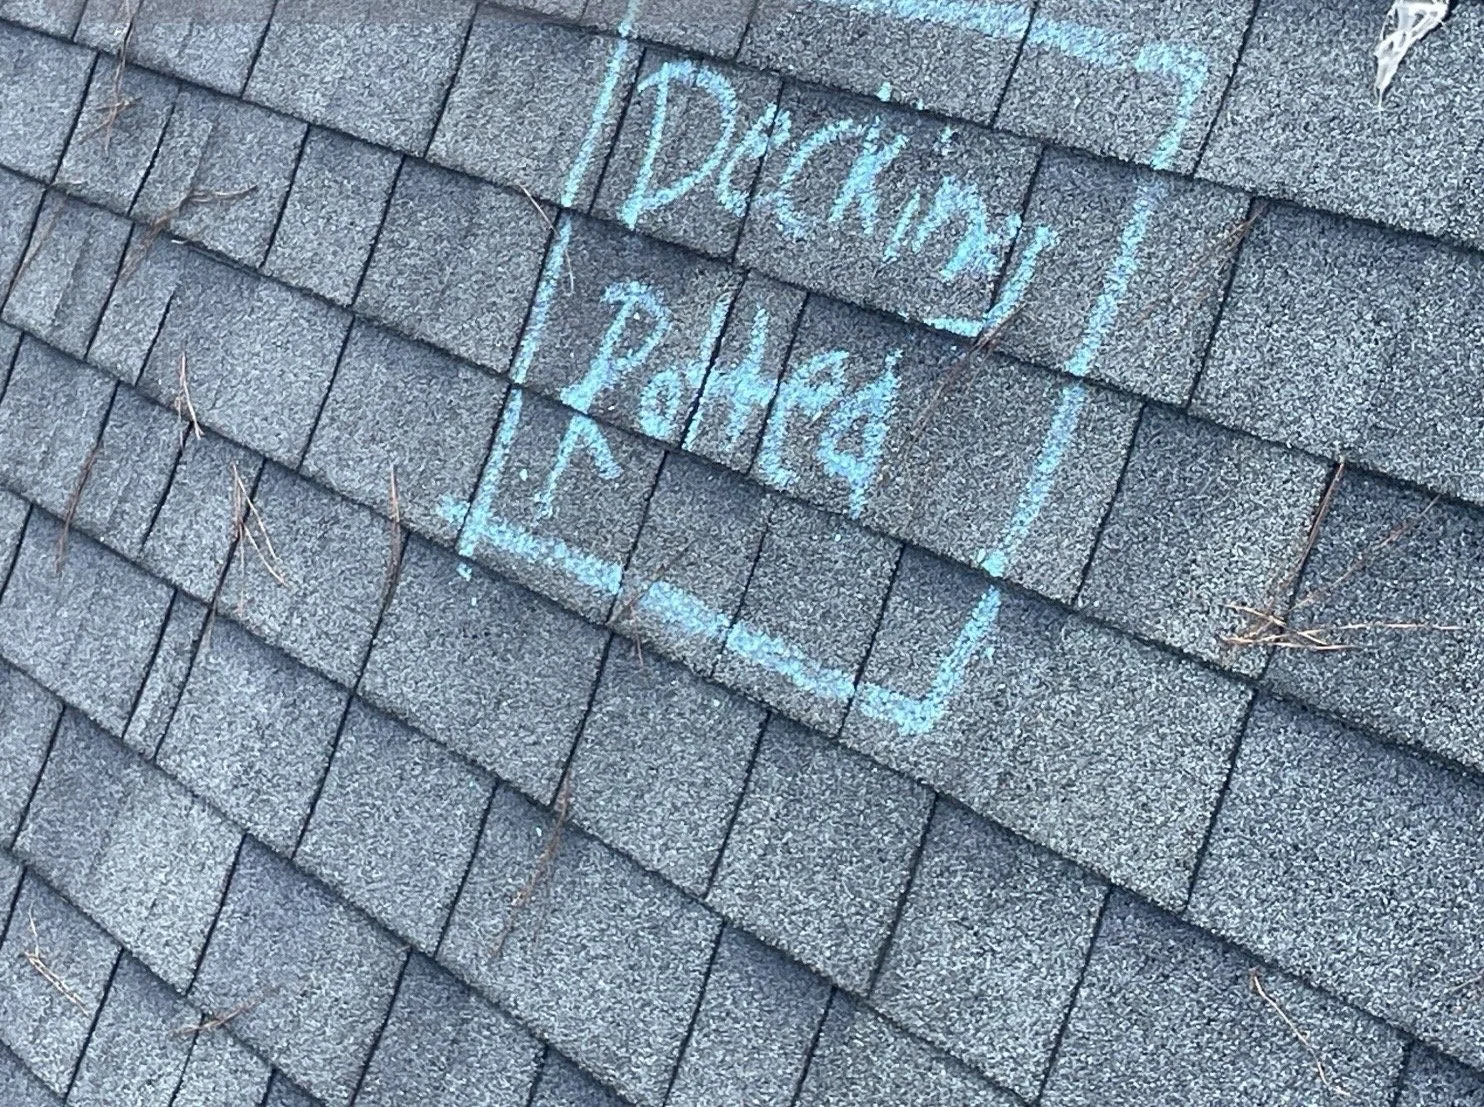 Decking
Rotted